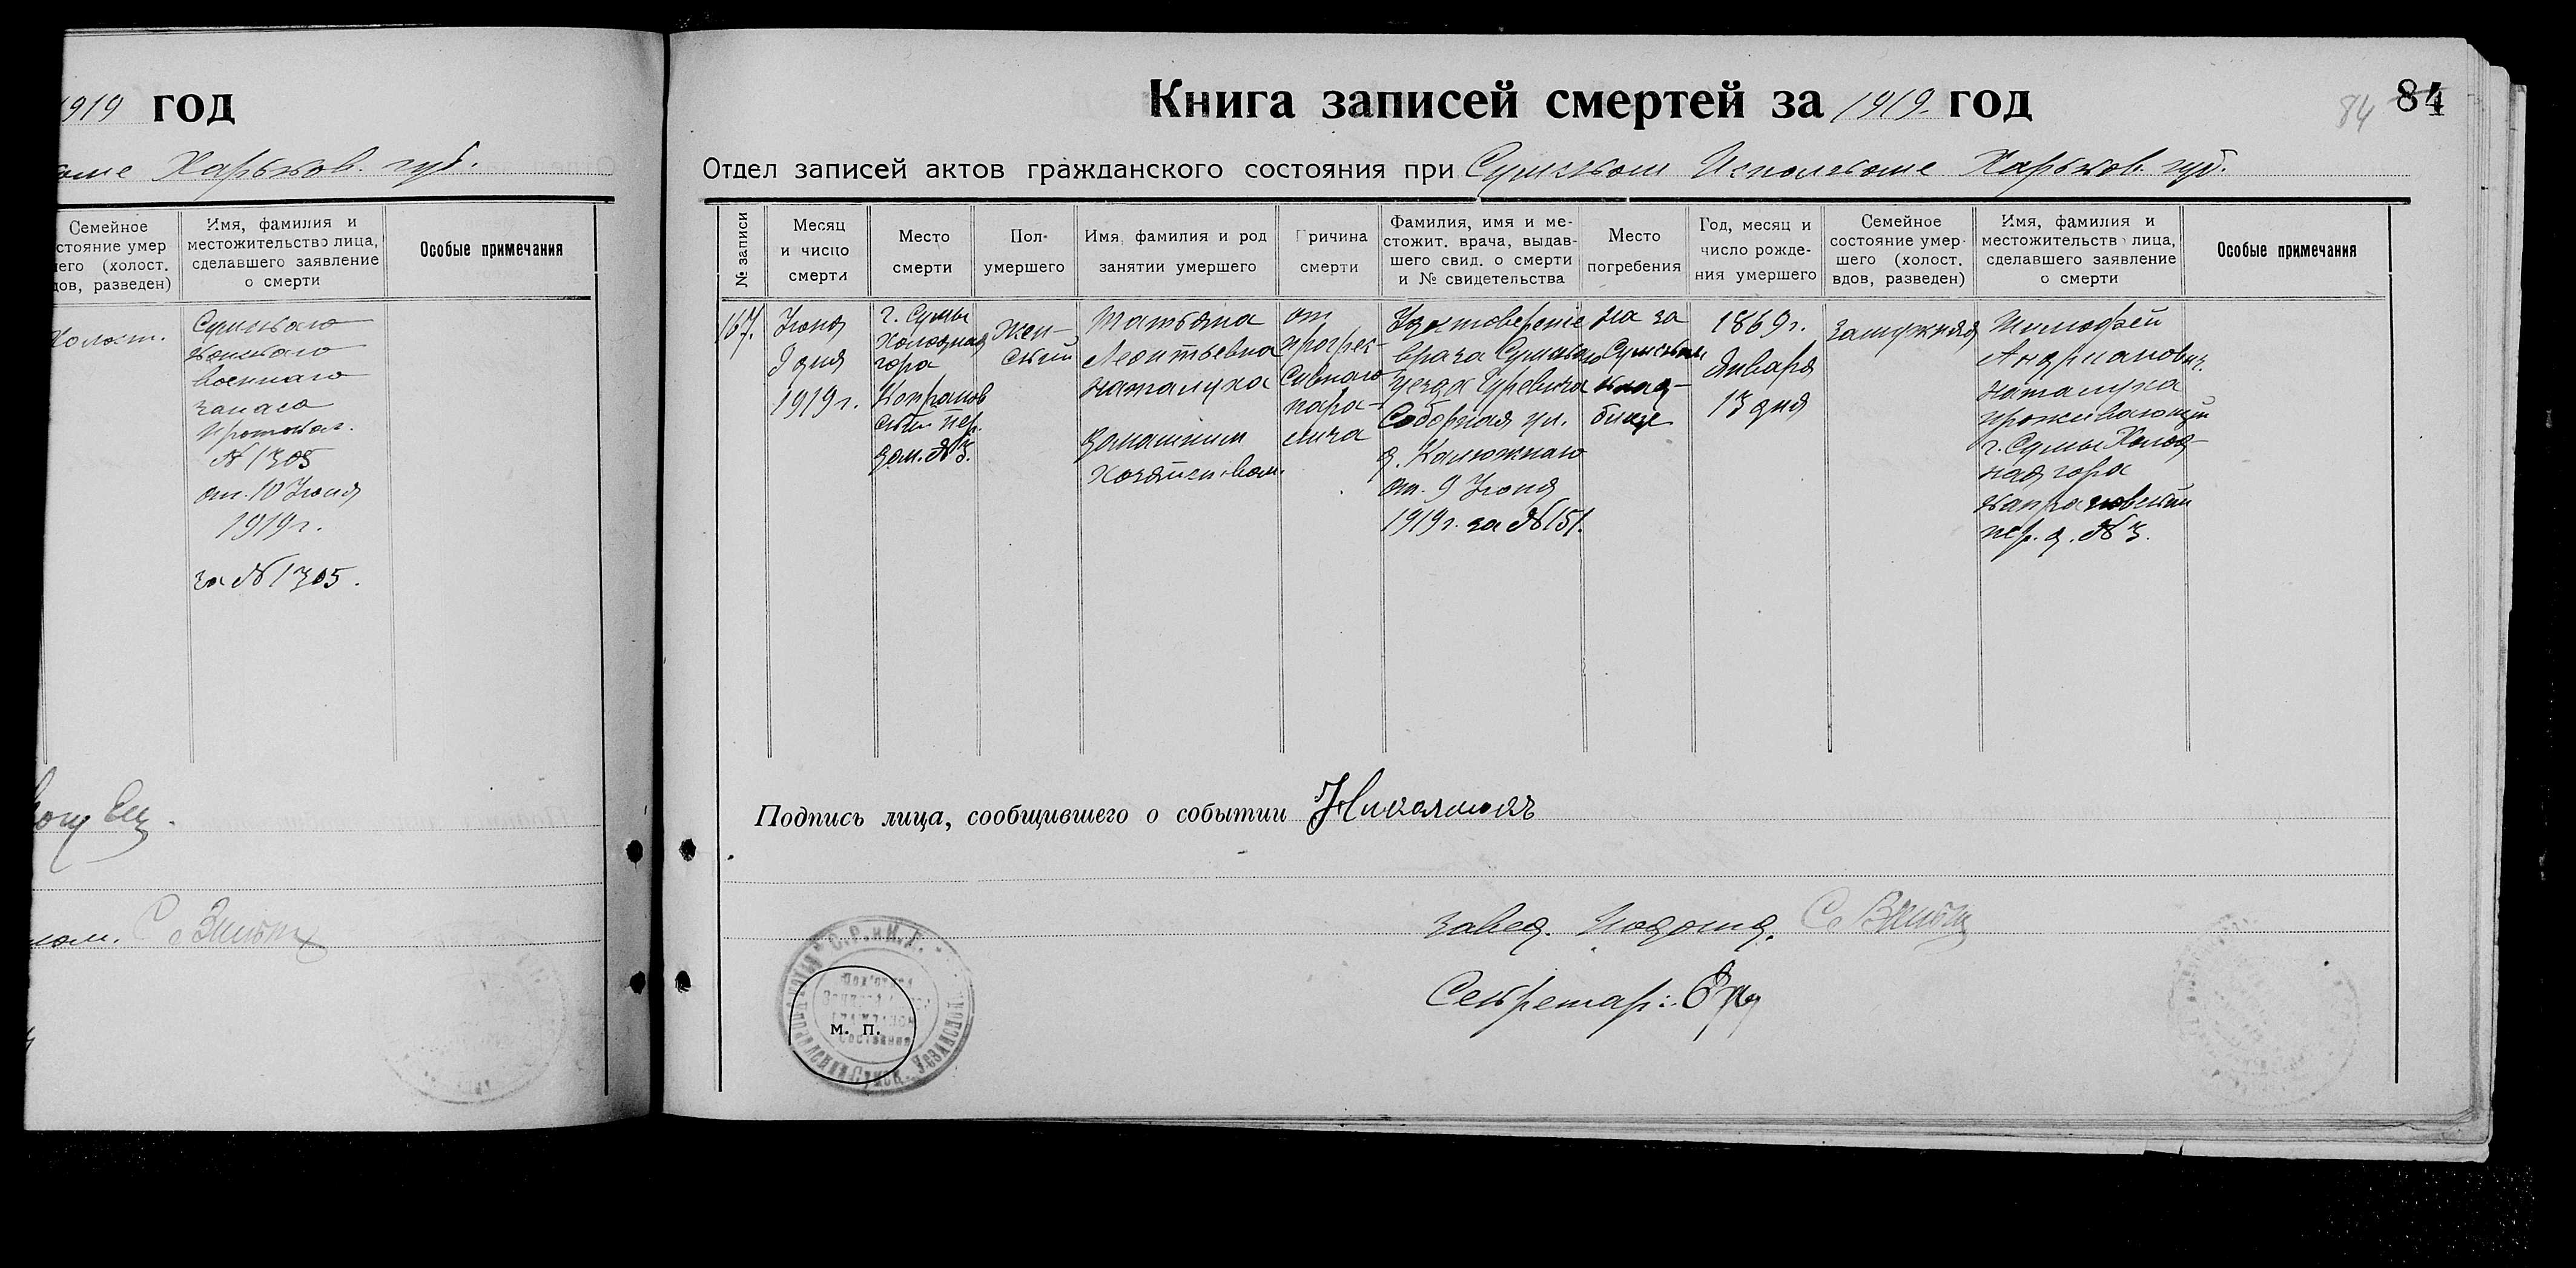 1919 год
Харьков. губ.
Семейное
стояние умер
шего (холост.
дов, разведен)
Имя, фамилия и
местожительство лица,
сделавшего заявление
о смерти
Особые примечания
Холост.
Сумского
конского
военнаго
запаса
протокол.
№ 1305
от. 10 Июня
1919 г.
за № 1305.
Книга записей смертей за 1919 год
84 84
Отдел записей актов гражданского состояния при Сумском Исполкоме Харьков. губ.
№ записи
Месяц
и число
смерти
Место
смерти
Пол
умершего
Имя, фамилия и род
занятии умершего
Причина
смерти
Фамилия, имя и ме-
стожит. врача, выдав-
шего свид. о смерти
и № свидетельства
Место
погребения
Год, месяц и
число рожде-
ния умершего
Семейное
состояние умер-
шего (холост.
вдов, разведен)
Имя, фамилия и
местожительство лица,
сделавшего заявление
о смерти
Особые примечания
167.
Июня
9 дня
1919 г.
г. Сумы
Холодная
гора
Капранов
ский пер.
дом. № 3.
Жен-
ский
Татьяна
Леонтьевна
Наталуха
Домашним
Хозяйством.
от
прогрес-
сивнаго
пара-
лича
Удостоверение
врача Сумскаго
уезда Гуревича
Соборная ул.
д. Калюжнаго
от. 9 Июня
1919 г. за № 151.
на
Сумском
клад-
бище
1869 г.
Января
13 дня
замужняя
Тимофей
Андрианович
Наталуха
проживающий
г. Сумы Холод-
ная гора
Капрановский
пер. д. № 3.
Подпись лица, сообщившего о событии
Завед. Подотд.
Секретар:
м. п.